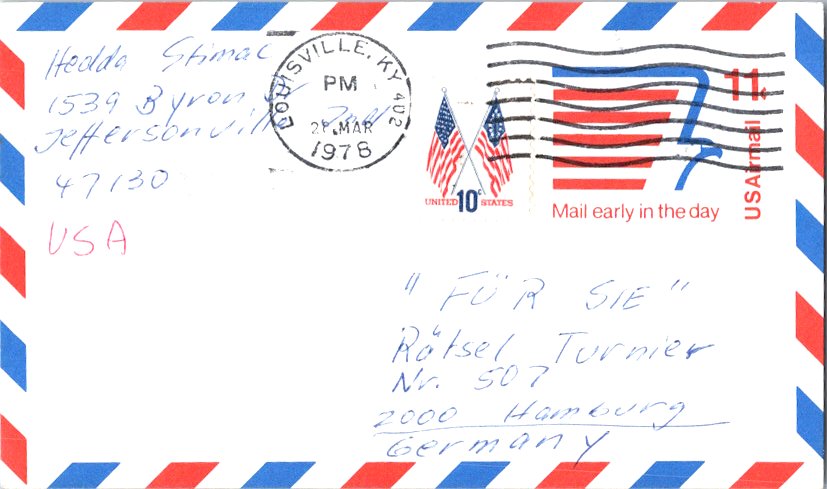 Hedda Stimac
1539 Byron Dr
Jeffersonville Ind
47130
USA
LOUISVILLE, KY 402
PM
MAR
1978
UNITED 10c STATES
11¢
USAirmail
Mail early in the day
"FÜR SIE"
Rätsel Turnier
Nr. 507
2000 Hamburg
Germany